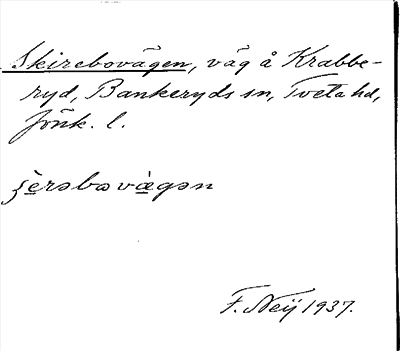 Skirebovägen, väg å Krabbe-
ryd, Bankeryds sn, Tveta hd,
Jönk. l.
ʂèrəbovæ̀gən
F. Neij 1937.